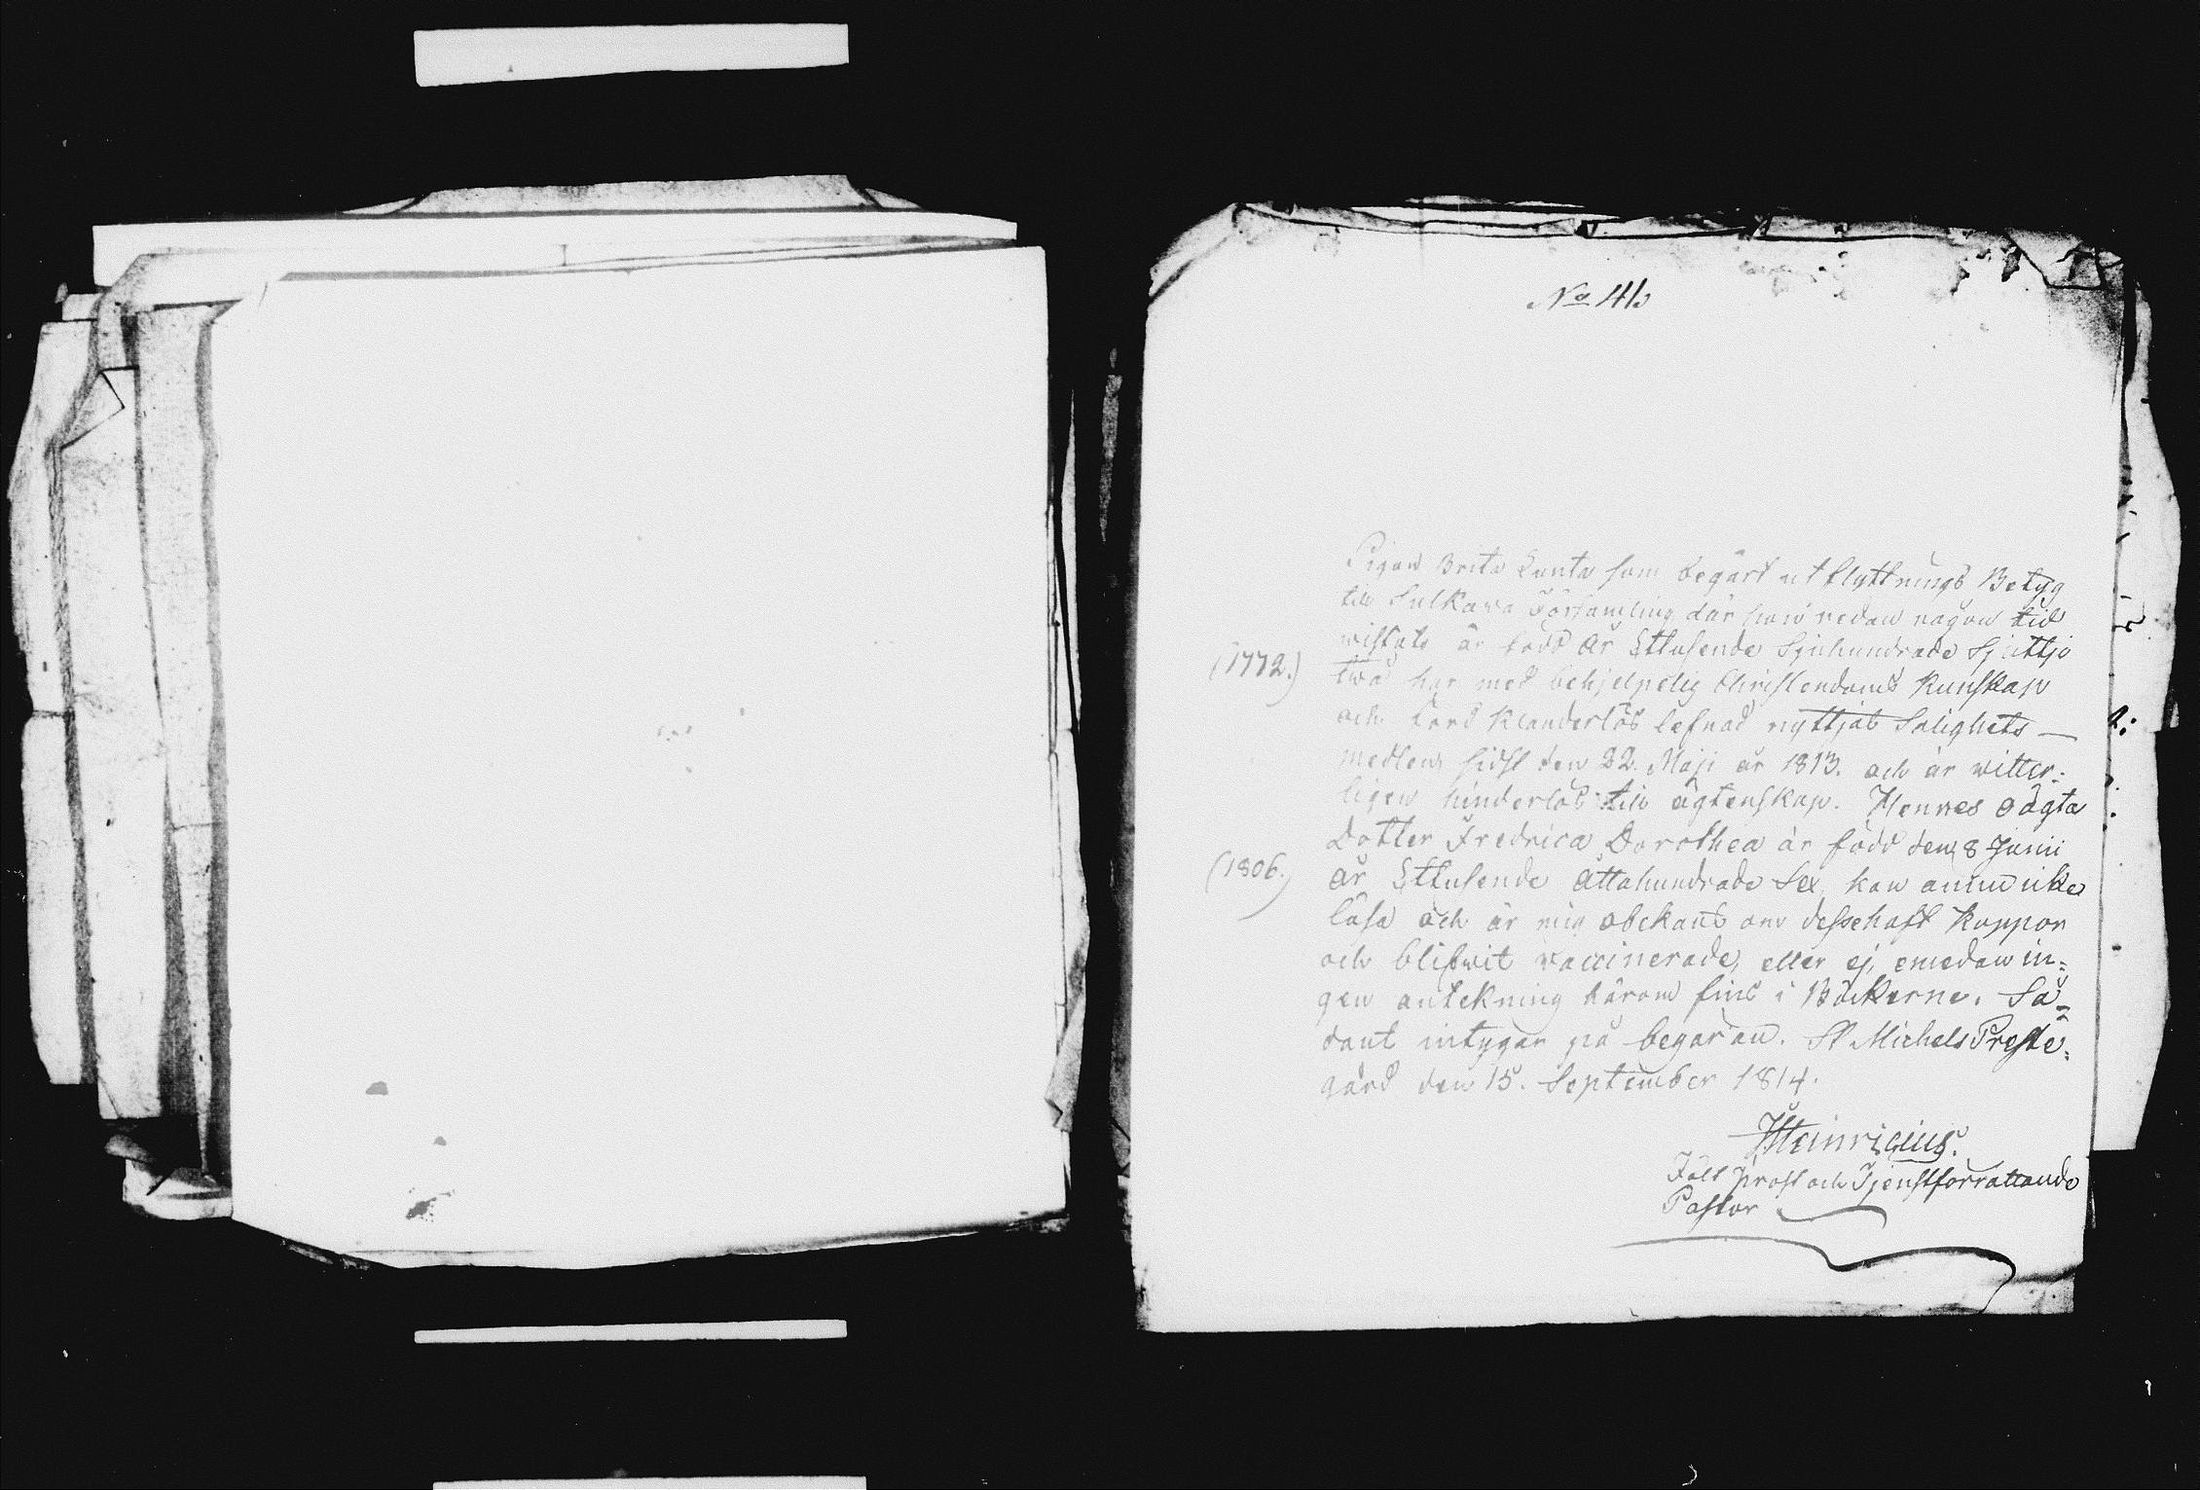 No 41
Pigan Brita Lanta som begärt utflyttnings Betyg
till Sulkava Församling där hon redan någon tid
wistats är född År Ettusende Sjuhundrade Sjuttjo
(1772.) twå har med behjelpelig Christendoms Kunskap
och förd Klanderlös lefnad nyttjat Salighets
medlen sidst den 22. Maji år 1813. och är witter:
ligen hinderlös till ägtenskap. Hennes oägta
Dotter Fredrica Dorothea är född den 8 Junii
(1806.) År Ettusende Åttahundrade Sex, kan ännu icke
läsa och är mig obekant om desse haft Koppor
och blifwit vaccinerade, eller ej, emedan in:
gen antekning därom fins i Böckerne. Så=
dant intygar på begäran. St Michels Preste:
gård den 15. September 1814.
Heinricius.
Fält Prost och Tjenstförrättande
Pastor